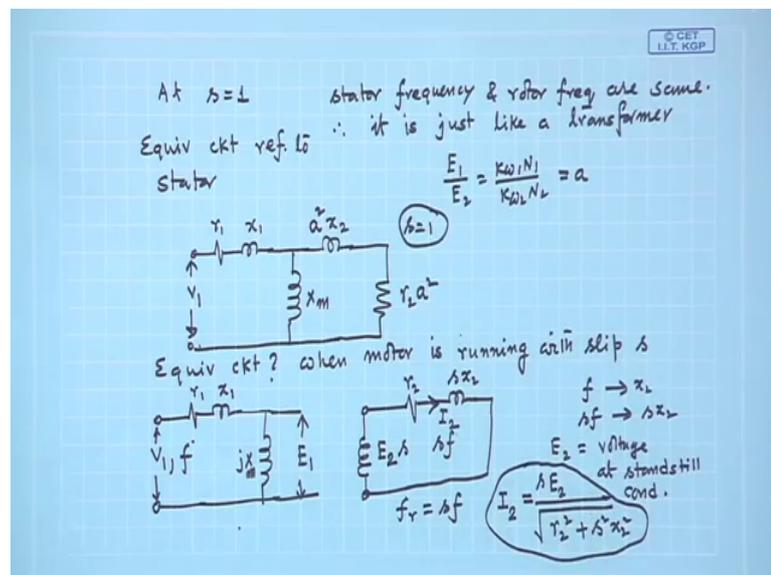 © CET
I.I.T. KGP
At s=1 stator frequency & rotor freq are same.
∴ it is just like a transformer
Equiv ckt ref. to
stator
E₁/E₂ = Kω₁N₁/Kω₂N₂ = a
r₁ x₁ a²x₂ s=1
V₁ Xm r₂a²
Equiv ckt? when motor is running with slip s
r₁ x₁ r₂ sx₂ f → x₂
I₂ sf → sx₂
V₁, f jXm E₁ E₂s sf E₂ = voltage
at standstill
cond.
fr = sf I₂ = sE₂/√(r₂² + s²x₂²)